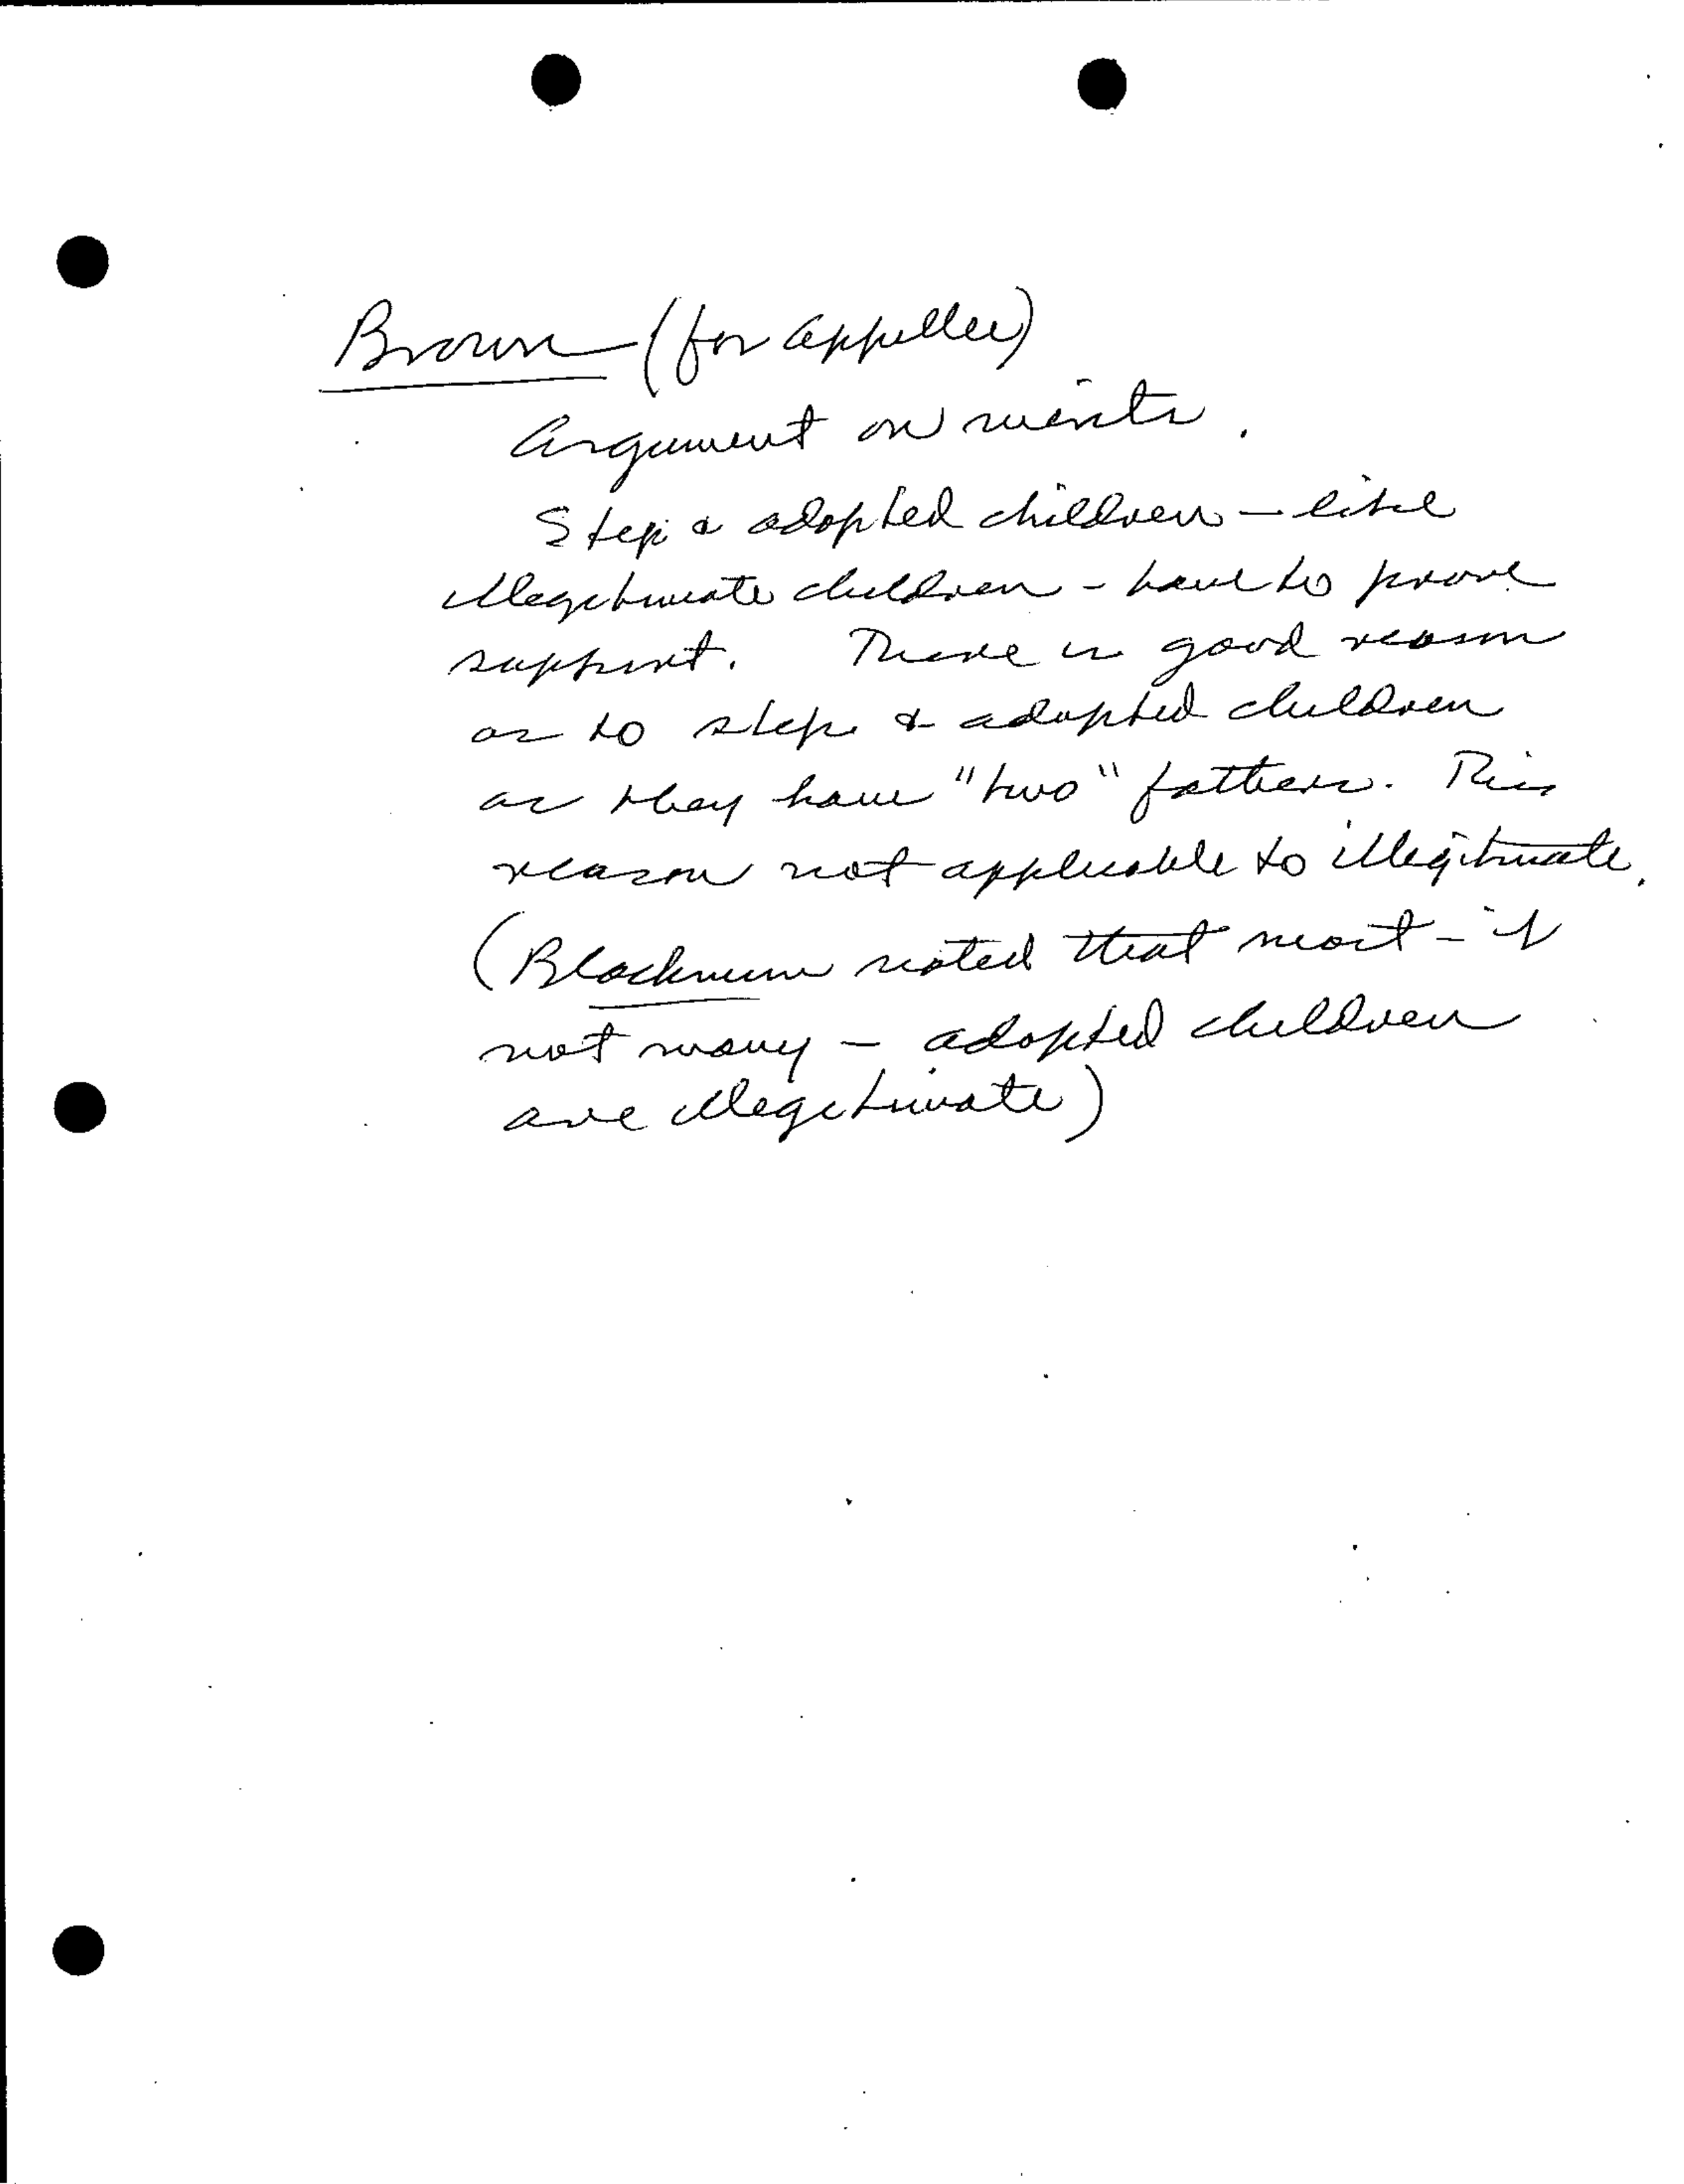 Brown (for appellee)
Argument on merits.
Step & adopted children – like
illegitimate children - have to prove
support. There is good reason
as to step & adopted children
as they have "two" fathers. This
reason not applicable to illegitimate.
(Blackmun noted that most - if
not many – adopted children
are illegitimate)